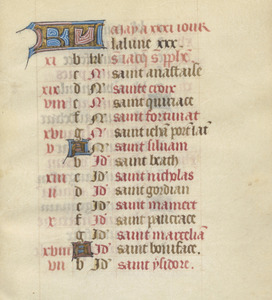 May a xxxi iour
la lune xxx.
xi b kł s iacq̃ s phłx
c N saint anastaise
xix d N sainte croix
viii e N saint quiriace
f N saint fortunat
xvi g N saint iehã port lat̃
A N saint siluain
v b Id saint beath
xiii c Id saint nicholas
ii d Id saint gordian
e Id saint mamert
x f Id saint pancrace
g Id saint marceliã
xviii A Id saint boniface
vii b Id saint ysidore.